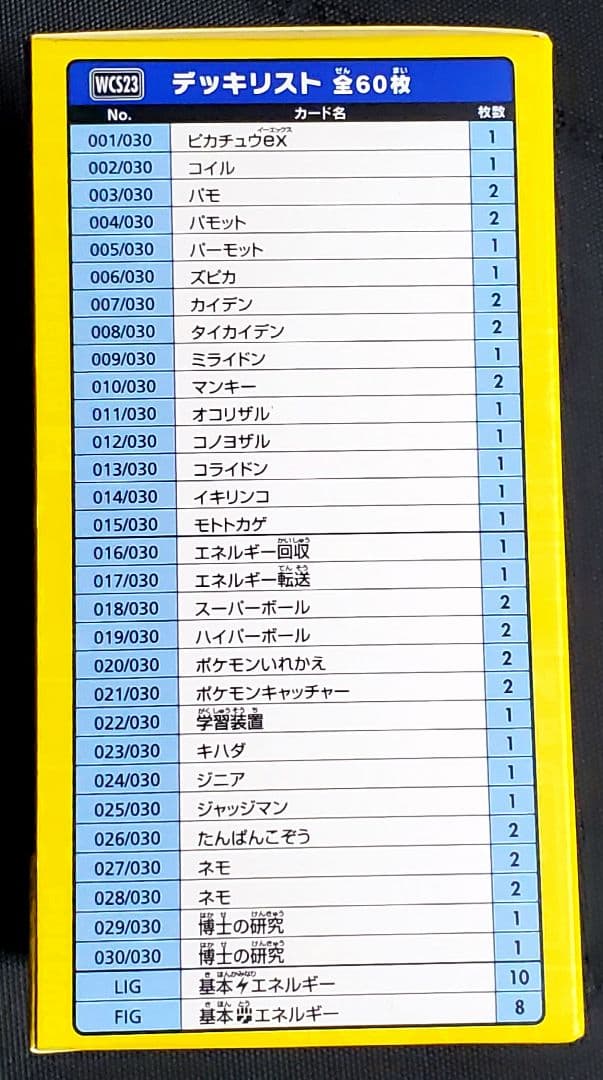 WCS23 デッキリスト 全60枚
ぜん まい
No. カード名 枚数
001/030 ピカチュウex 1
イーエックス
002/030 コイル 1
003/030 パモ 2
004/030 パモット 2
005/030 パーモット 1
006/030 ズピカ 1
007/030 カイデン 2
008/030 タイカイデン 2
009/030 ミライドン 1
010/030 マンキー 2
011/030 オコリザル 1
012/030 コノヨザル 1
013/030 コライドン 1
014/030 イキリンコ 1
015/030 モトトカゲ 1
016/030 エネルギー回収 1
かいしゅう
017/030 エネルギー転送 1
てんそう
018/030 スーパーボール 2
019/030 ハイパーボール 2
020/030 ポケモンいれかえ 2
021/030 ポケモンキャッチャー 2
022/030 学習装置 1
がくしゅうそうち
023/030 キハダ 1
024/030 ジニア 1
025/030 ジャッジマン 1
026/030 たんぱんこぞう 2
027/030 ネモ 2
028/030 ネモ 2
029/030 博士の研究 1
はかせ けんきゅう
030/030 博士の研究 1
はかせ けんきゅう
LIG 基本エネルギー 10
きほんかみなり
FIG 基本エネルギー 8
きほんとう